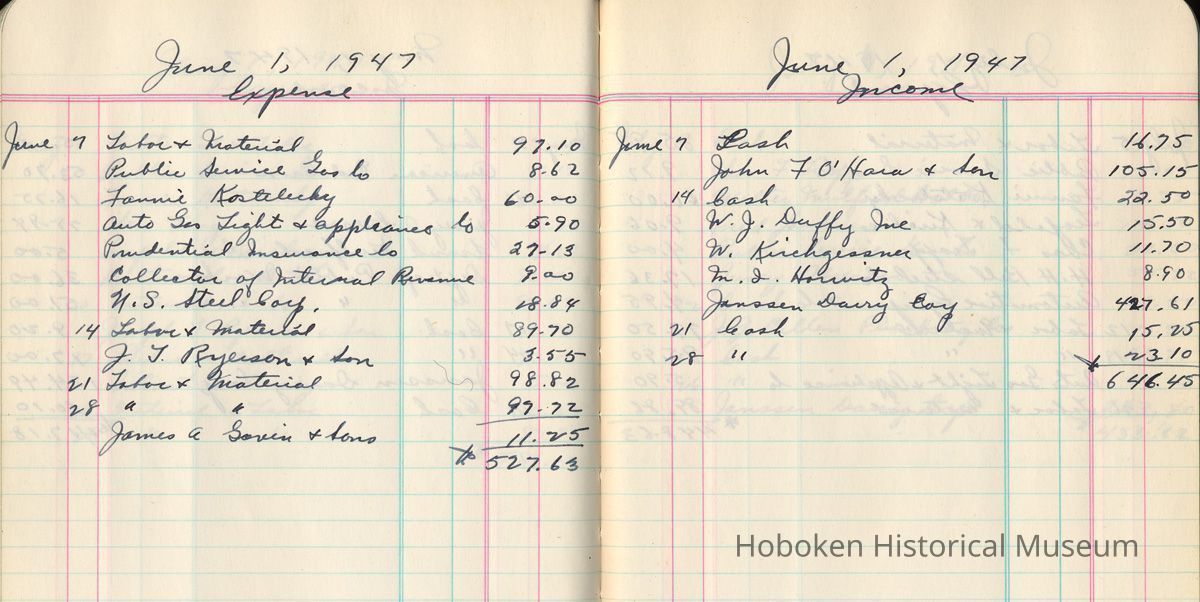 June 1, 1947
Expense
June 7 Labor & Material 97.10
Public Service Gas Co 8.62
Fannie Kostelecky 60.00
Auto Gas Light & appliance Co 5.90
Prudential Insurance Co 27.13
Collector of Internal Revenue 9.00
U.S. Steel Corp. 18.84
14 Labor & Material 89.70
J. T. Ryerson & Son 3.55
21 Labor & Material 98.82
28 " " 97.72
James A Gavin & Sons 11.25
527.63
June 1, 1947
Income
June 7 Cash 16.75
John F O'Hara & Son 105.15
14 Cash 22.50
W. J. Duffy Inc 15.50
W. Kirchgessner 11.70
M. I. Horwitz 8.90
Janssen Dairy Corp 427.61
21 Cash 15.25
28 " 23.10
646.45
Hoboken Historical Museum